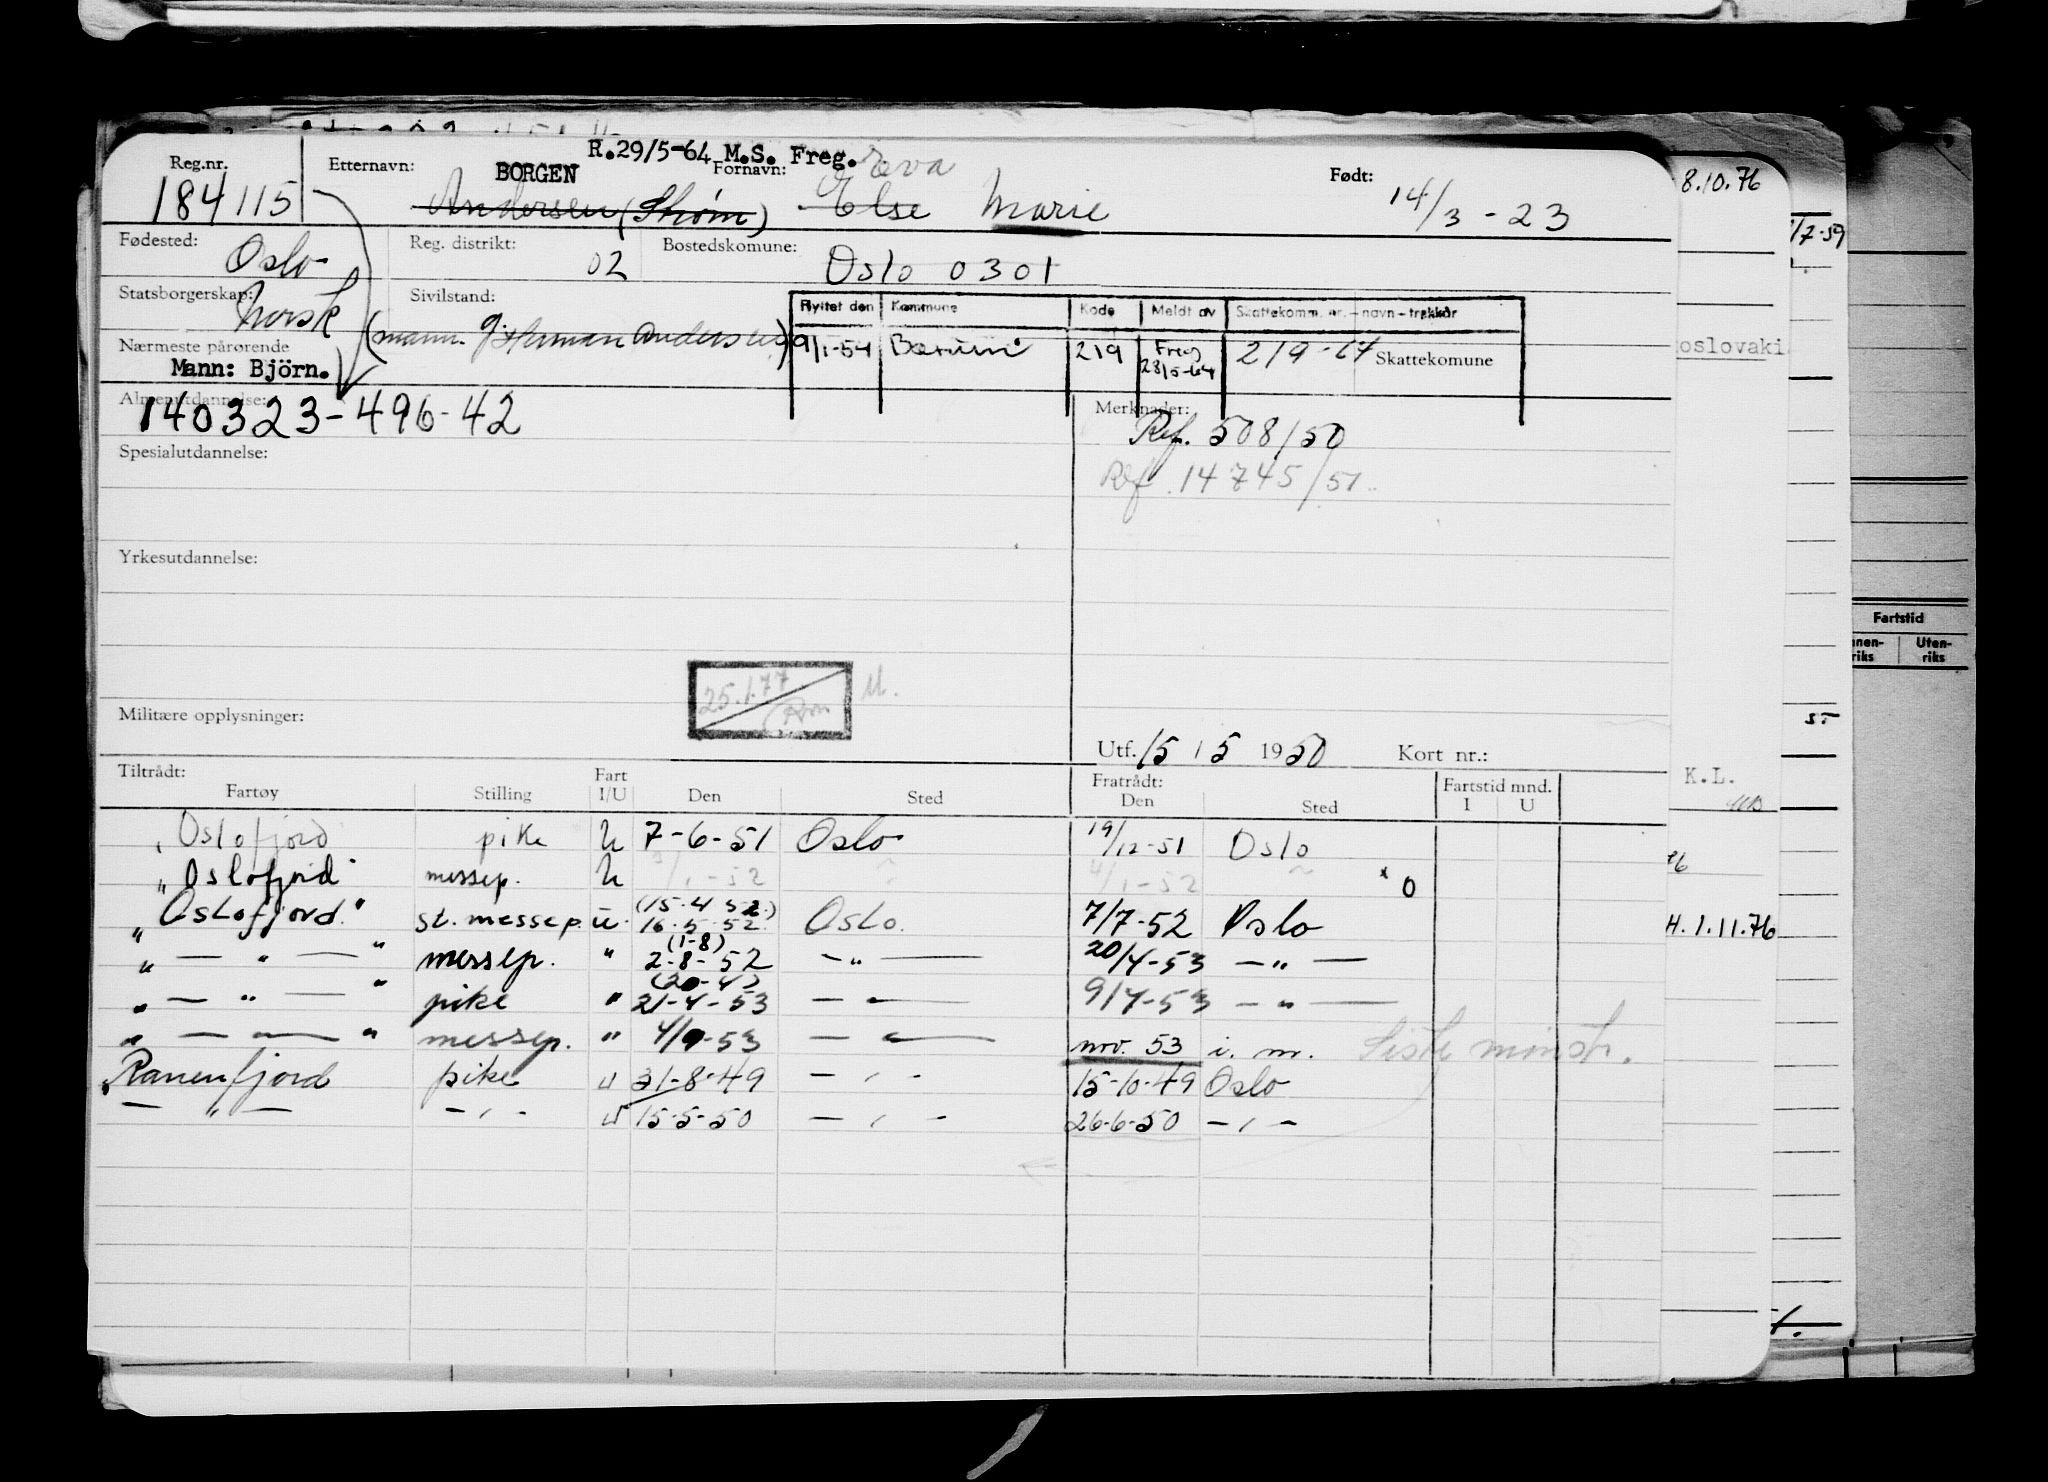 R.29/5-64 M.S. Freg.
Reg.nr. Etternavn: BORGEN Fornavn: Eva Født:
184115 Andersen (Strøm) Else Marie 14/3 - 23
Fødested: Oslo Reg. distrikt: 02 Bostedskomune: Oslo 0301
Statsborgerskap: Norsk Sivilstand:
Flyttet den Kommune Kode Meldt av Skattekomm. nr. - navn - trekkår
(mann. Herman Andersen)
9/1-54 Bærum 219 Freg 28/5-64 219-64 Skattekomune
Nærmeste pårørende
Mann: Björn.
Almenutdannelse: Merknader:
140323-496-42 Ref. 508/50
Spesialutdannelse:
Ref. 14745/51
Yrkesutdannelse:
25.1.77 M.
Militære opplysninger:
Utf. 15 / 5 1950 Kort nr.:
Tiltrådt: Fart Fratrådt: Fartstid mnd.
Fartøy Stilling I/U Den Sted Den Sted I U
"Oslofjord pike U 7-6-51 Oslo 19/12-51 Oslo
"Oslofjord" messep. U /1-52 4/1-52 x 0
"Oslofjord" st. messep. U (15.4 52.) 16.5.52. Oslo. 7/7-52 Oslo
" — " — " messep. " (1-8) 2-8-52 — " — 20/4-53 — " —
" — " — " pike " (20-4) 21-4-53 — " — 9/7-53 — " —
" — " — " messep. " 4/9-53 — " — nov. 53 i. m. Siste mønstr.
Ranenfjord pike U 31-8-49 — " — 15-10-49 Oslo
— " — — " — U 15-5-50 — " — 26-6-50 — " —
8.10.76
/7-59
oslovaki
Fartstid
nnen-riks Uten-riks
55
K.L.
76
H. 1.11.76